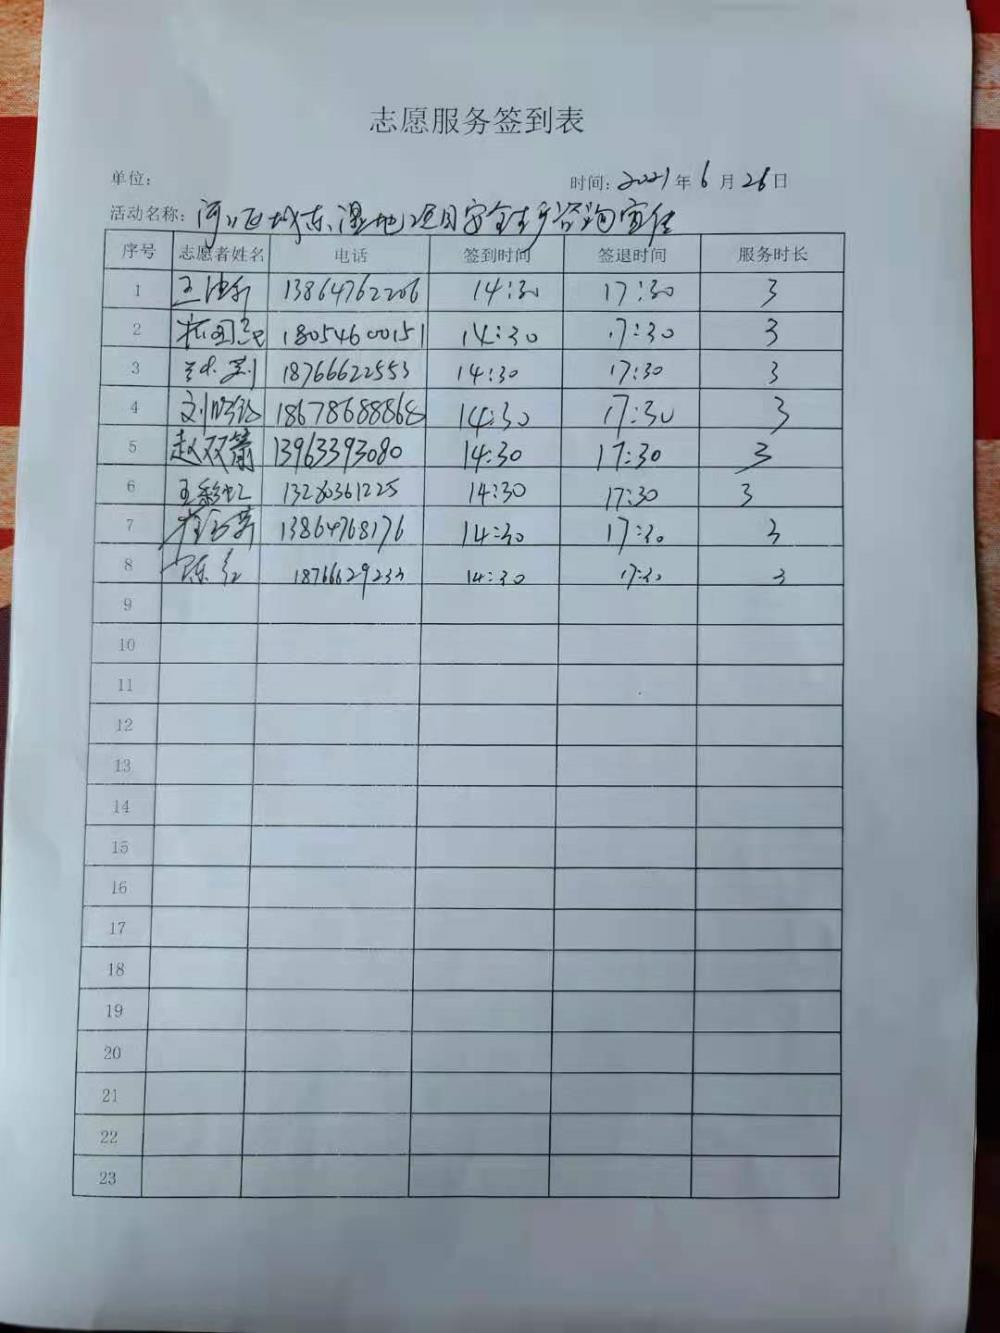 志愿服务签到表
单位:
时间: 2021 年 6 月 26 日
活动名称: 河口区城东湿地项目安全生产咨询宣传
序号 志愿者姓名 电话 签到时间 签退时间 服务时长
1 13864762206 14:30 17:30 3
2 18054600151 14:30 17:30 3
3 18766622553 14:30 17:30 3
4 18678688868 14:30 17:30 3
5 赵双箭 13963393080 14:30 17:30 3
6 王彩虹 13280361225 14:30 17:30 3
7 13864768176 14:30 17:30 3
8 陈红 18766629233 14:30 17:30 3
9
10
11
12
13
14
15
16
17
18
19
20
21
22
23